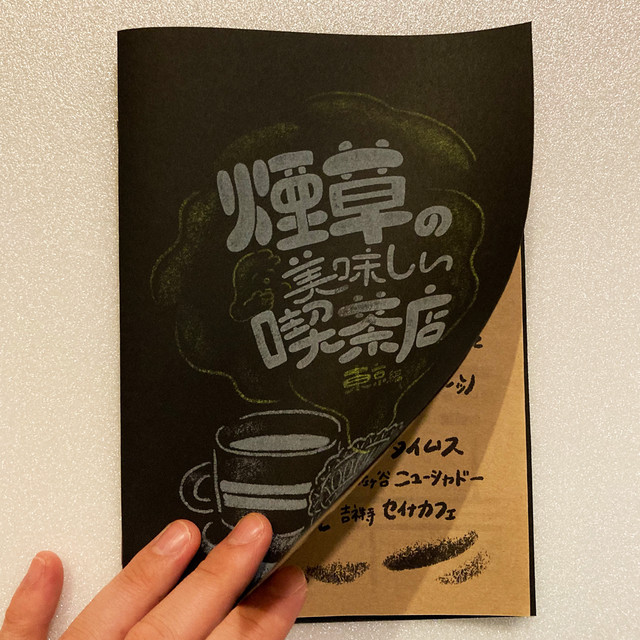 煙草の
美味しい
喫茶店
東京編
タイムス
ヶ谷 ニューシャドー
吉祥寺 セイナカフェ